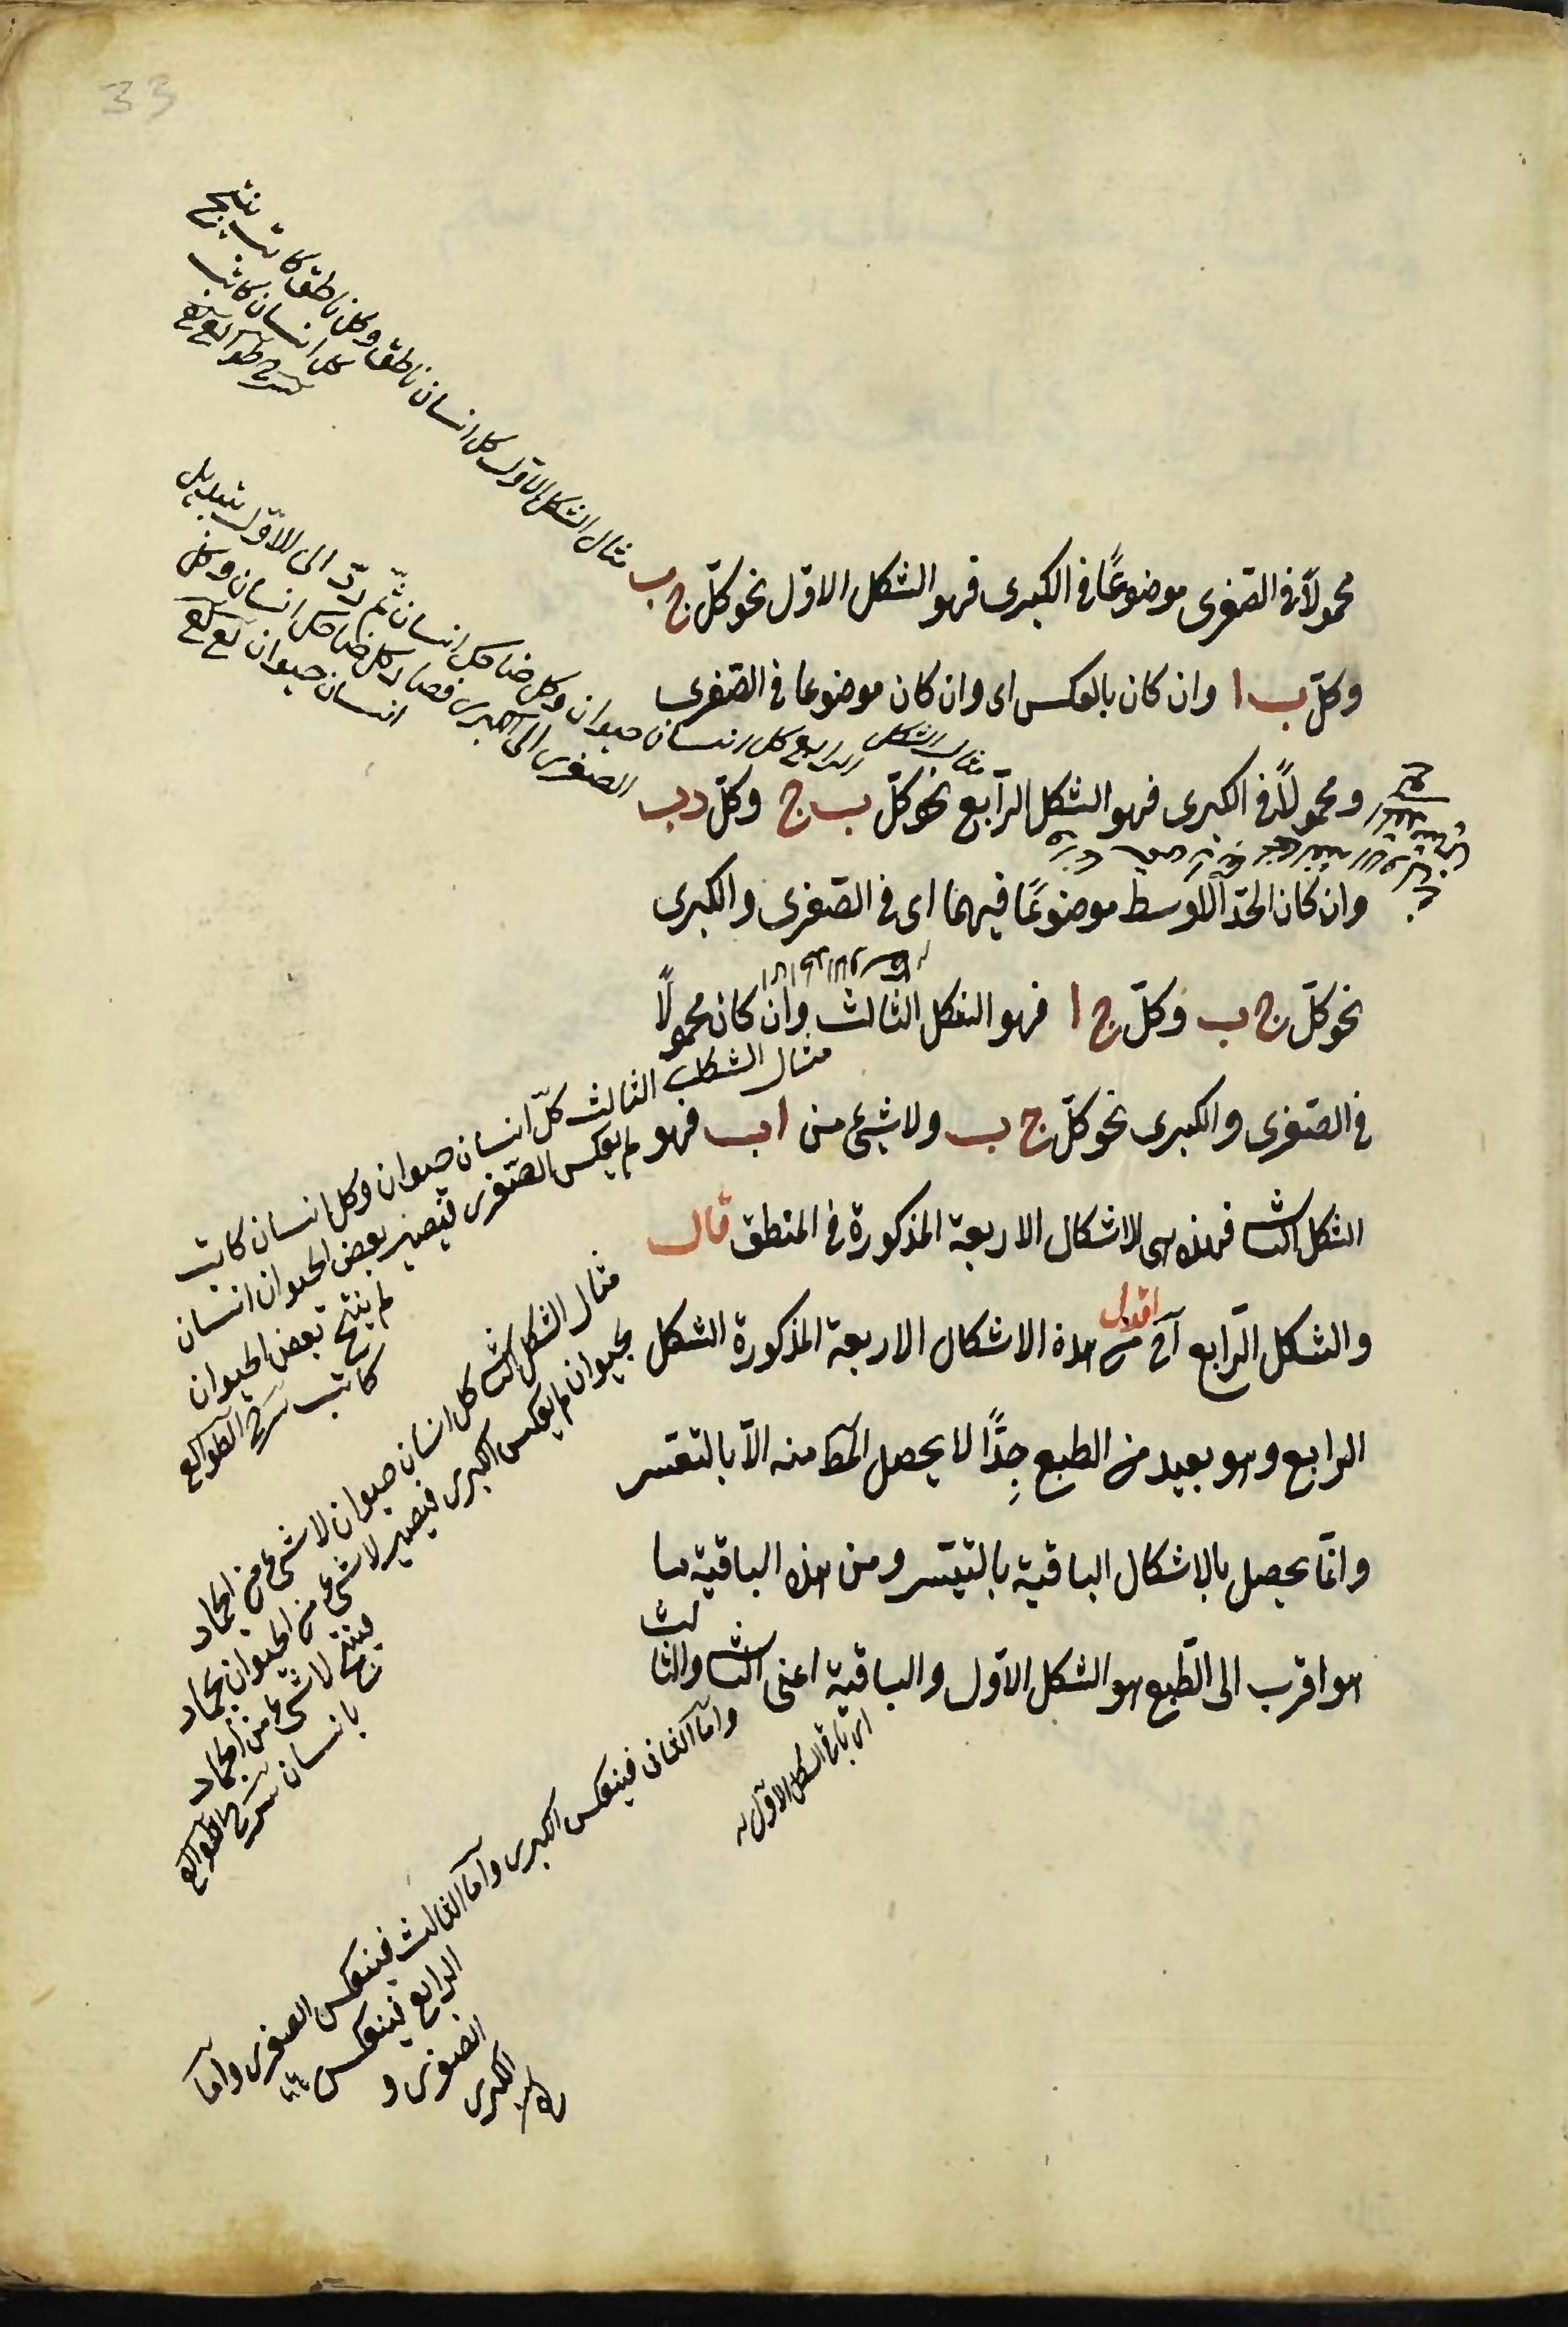 33
محمولاً في الصغرى موضوعًا في الكبرى فهو الشكل الاول نحو كلّ ج ب
وكلّ ب ا وان كان بالعكس اى وان كان موضوعا في الصغرى
ومحمولاً في الكبرى فهو الشكل الرّابع نحو كلّ ب ج وكلّ د ب
وان كان الحدّ الاوسط موضوعًا فيهما اى في الصغرى والكبرى
نحو كلّ ج ب وكلّ ج ا فهو الشكل الثالث وان كان محمولاً
في الصغرى والكبرى نحو كلّ ج ب ولا شيئ من ا ب فهو
الشكل الثا فهذه هى الاشكال الاربعة المذكورة في المنطق قال
والشكل الرّابع آه اقول من هذه الاشكال الاربعة المذكورة الشكل
الرابع وهو بعيد من الطبع جِدًّا لا يحصل المط منه الاّ بالتعسر
وانّما يحصل بالاشكال الباقية بالتيسّر ومن هذه الباقية ما
هو اقرب الى الطّبع هو الشكل الاوّل والباقية اعنى الثا والثالث
مثال الشكل الاوّل كل انسان ناطق وكل ناطق كاتب ينتج
كل انسان كاتب
شرح طوالع
مثال الشكل الرابع كل انسان حيوان وكل ضاحك انسان ثم ردّ الى الاوّل بتبديل
الصغرى الى الكبرى فصار كل ضاحك انسان وكل
انسان حيوان
مثال الشكل الثالث كلّ انسان حيوان وكل انسان كاتب
ثم يعكس الصّغرى فيصير بعض الحيوان انسان
ثم ينتج بعض الحيوان
كاتب شرح الطوالع
مثال الشكل الثا كل انسان حيوان لا شئ من الجماد
بحيوان ثم يعكس الكبرى فيصير لا شئ من الحيوان بجماد
فينتج لا شئ من الجماد
بانسان شرح الطوالع
اى بان الشكل الاوّل
وامّا الثانى فينعكس الكبرى وامّا الثالث فينعكس الصغرى وامّا
الرابع فينعكس
الصغرى و
الكبرى